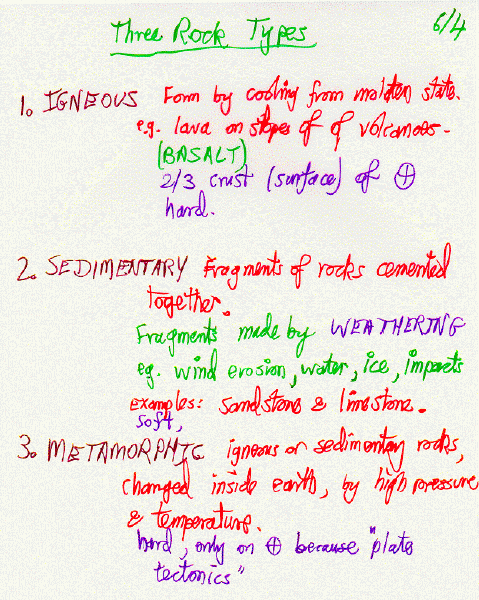 Three Rock Types 6/4
1. IGNEOUS Form by cooling from molten state.
e.g. lava on slopes of of volcanoes.
(BASALT)
2/3 crust (surface) of ⊕
hard.
2. SEDIMENTARY Fragments of rocks cemented
together.
Fragments made by WEATHERING
eg. wind erosion, water, ice, impacts
Examples: Sandstone & limestone.
soft,
3. METAMORPHIC igneous or sedimentary rocks,
changed inside earth, by high pressure
& temperature.
hard, only on ⊕ because "plate
tectonics"